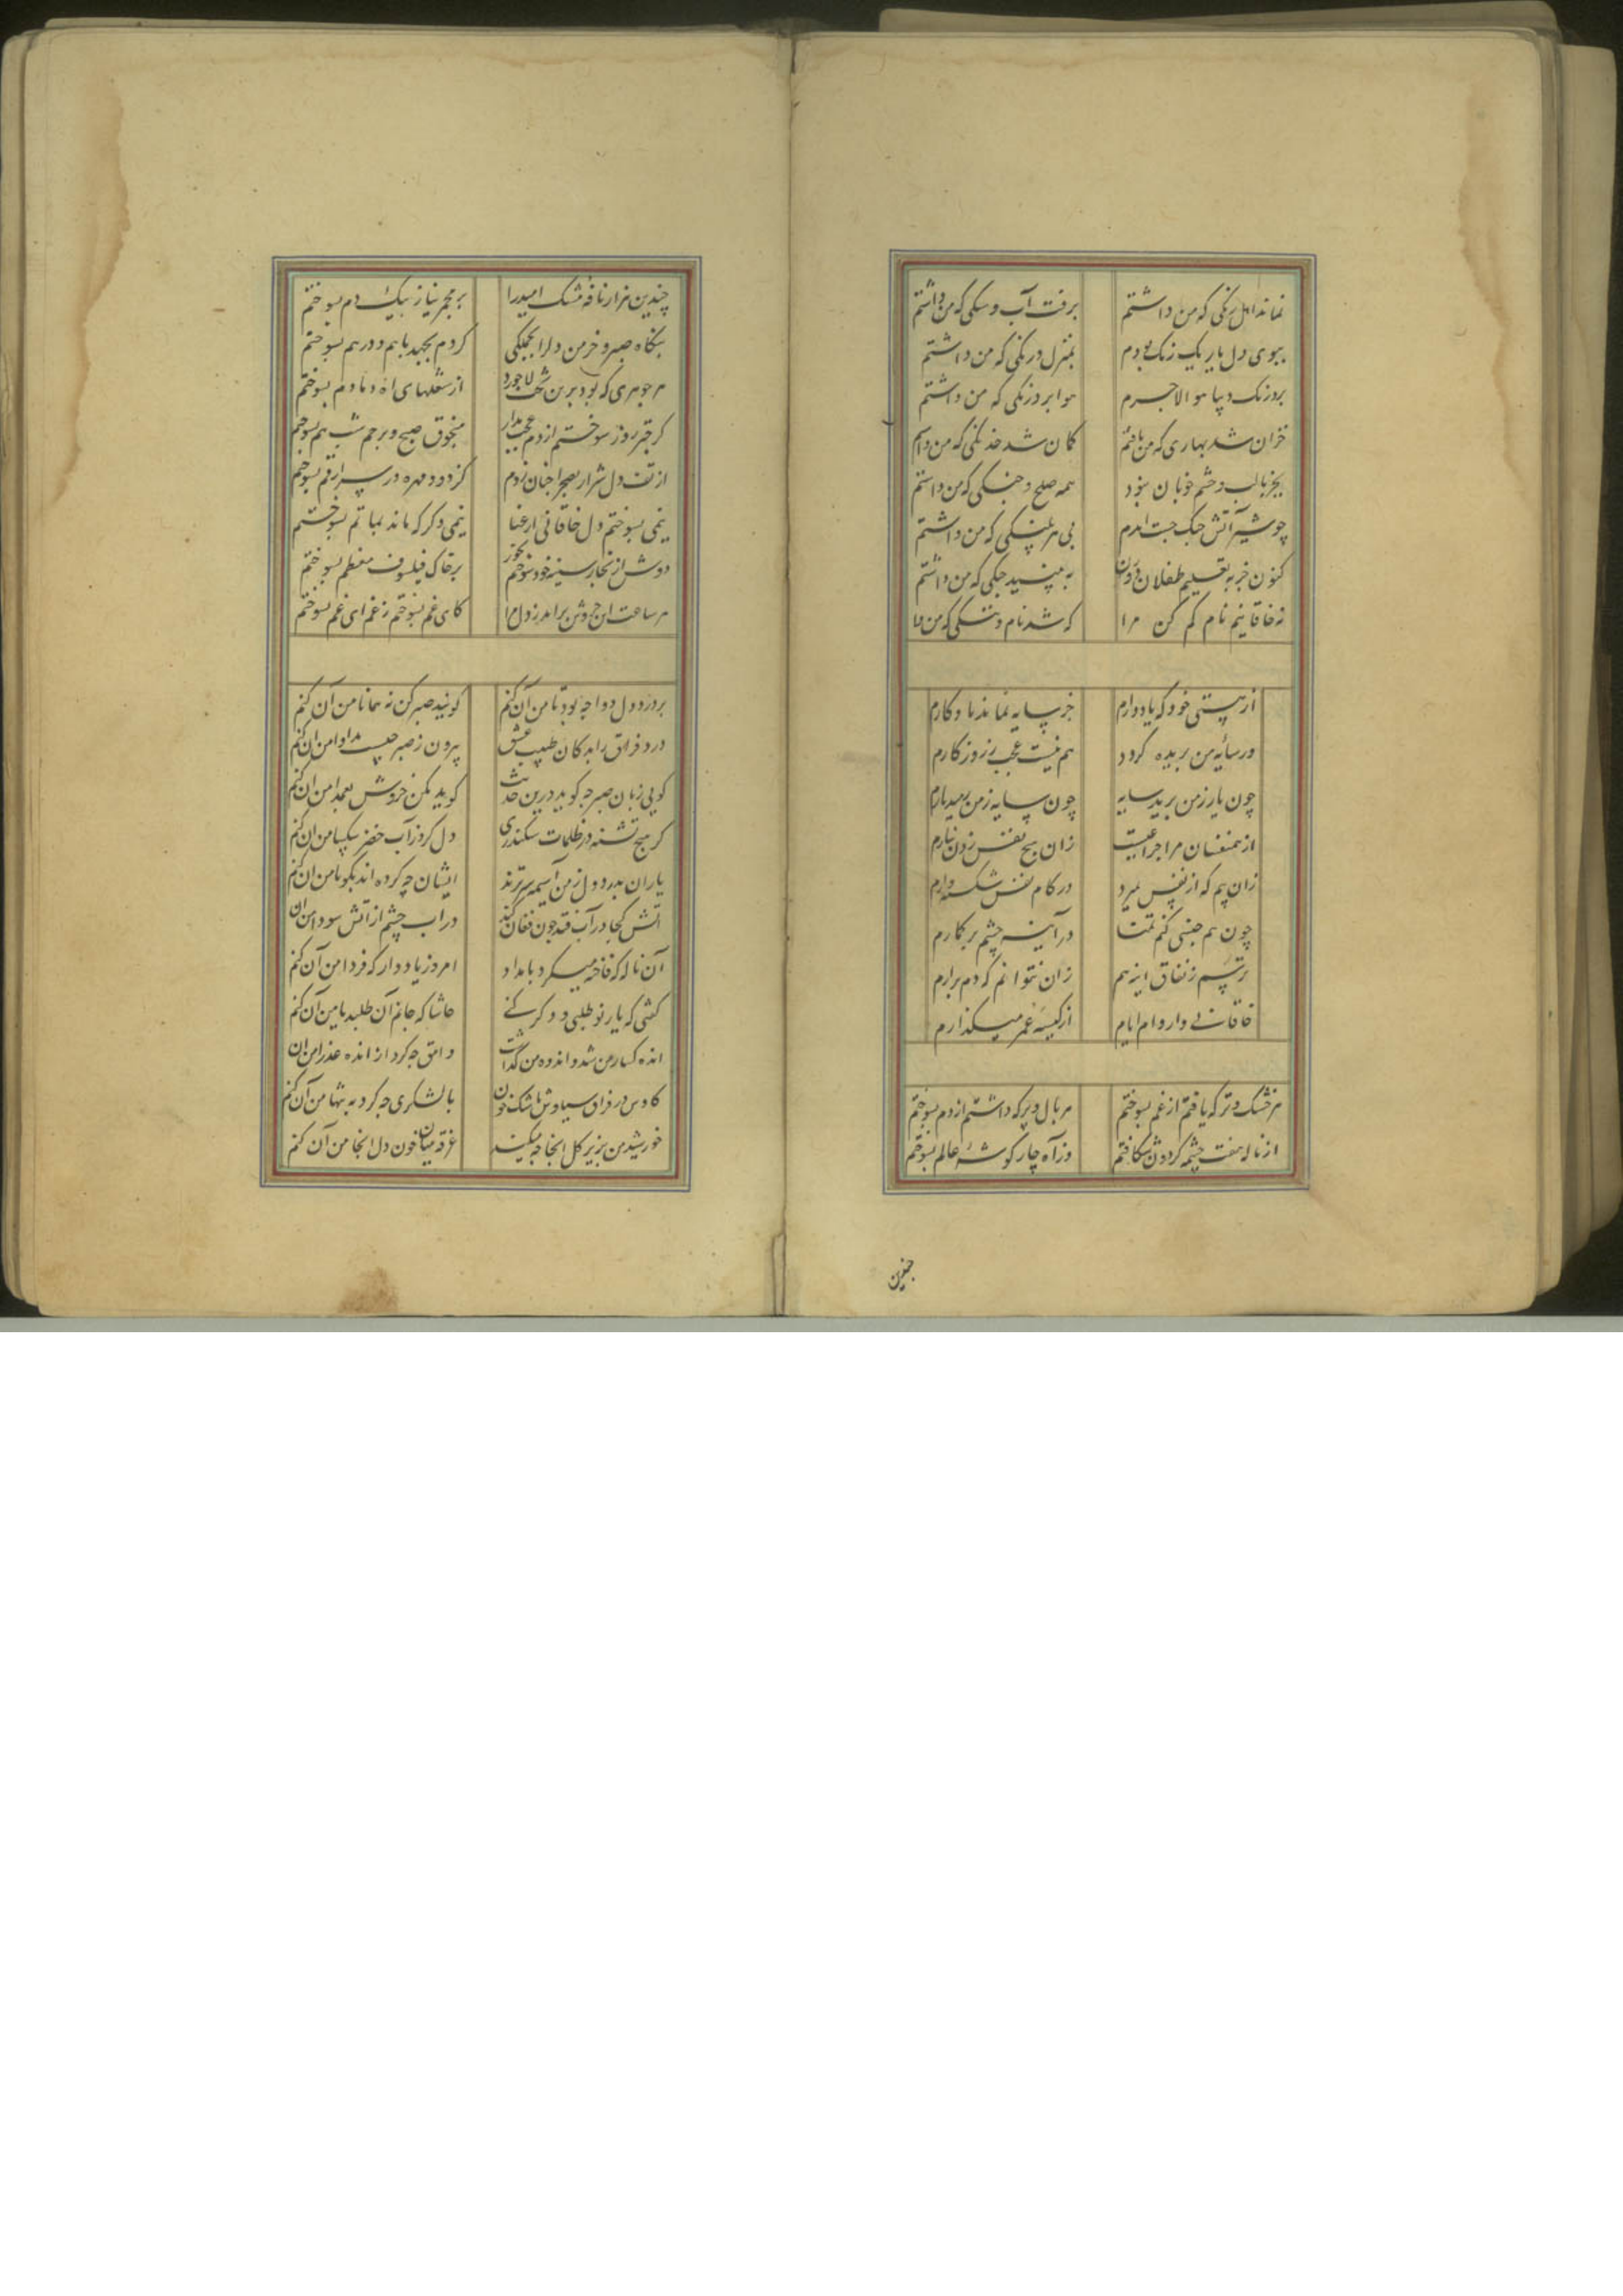 نماند اهل رنگی که من داشتم برفت آب و سنگی که من داشتم
ببوی دل یار یک رنگ بودم بمنزل درنگی که من داشتم
بروزنک دیبا هوا لاجرم هوا برد رنگی که من داشتم
خزان شد بهاری که من یافتم کمان شد خدنگی که من داشتم
بجز با لب و چشم خوبان نبود همه صلح و جنگی که من داشتم
چو شیر آتش جنگ جست اندرم پلنگی که من داشتم
کنون خر به تعلیم طفلان که من داشتم
نه خاقانیم نام کم کن مرا که شد نام و ننگی که من دا
از هستی خود که یاد دارم جز سایه نماند یادگارم
ور سائه من بریده کردد هم نیست عجب ز روزکارم
چون یار ز من برید سایه چون سایه ز من رمید یارم
از همنفسان مرا چراغیست زان هیچ نفس زدن نیارم
زان بیم که از نفس بمیرد در کام نفس شکسته دارم
چون هم جنسی کنم تمنا در آینه چشم بر کمارم
ترسم ز نفاق اینه هم زان نتوانم که دم برارم
خاقانی وار وام ایام از کیسه عمر میگذارم
هر خشک و تر که یافتم از غم بسوختم هر بال و پر که داشتم از دم بسوختم
از ناله هفت چشمه کردون شکافتم وز آه چار کوشه عالم بسوختم
چندین هزار نافه مشک امید را بر مجمر نیاز بیک دم بسوختم
بنگاه صبر و خرمن دل را بجملگی کردم بجهد با هم و درهم بسوختم
هر جوهری که بود برین تخت لاجورد از شعلهای اه دمادم بسوختم
کر چتر روز سوختم از دم عجب مدار منجوق صبح و پرچم شب هم بسوختم
از تف دل شرار بصحرا چنان زدم کز دود مهره در سر ارقم بسوختم
نیمی بسوختم دل خاقانی از عنا نیمی دکر که ماند بماتم بسوختم
دوش از بخار سینه خود بسوختم بر خاک فیلسوف معظم بسوختم
هر ساعت این خروش براید ز دل مرا کای غم بسوختم ز غم ای غم بسوختم
بر درد دل دوا چه بود تا من آن کنم کویند صبر کن نه همانا من آن کنم
درد فراق را بدکان طبیب عشق بیرون ز صبر چیست مداوا من ان کنم
کویی زبان صبر چه کوید درین حدیث کوید مکن خروش بعمدا من ان کنم
کر هیچ تشنه در ظلمات سکندری دل کرد ز آب خضر شکیبا من ان کنم
یاران بدرد دل ز من آسیمه سرترند ایشان چه کرده اند بکو تا من ان کنم
آتش کجا در آب فتد چون فغان کند در اب چشم از آتش سودا من ان
آن ناله که فاخته میکرد بامداد امروز یاد دار که فردا من آن کنم
کفتی که یار نو طلبی و دکر کنی حاشا که جانم آن طلبد یا من آن کنم
انده کسار من شد و انده من گذاشت وامق چه کرد از انده عذرا من ان
کاوس در فراق سیاوش باشک خون با لشکری چه کرد به تنها من آن کنم
خورشید من بزیر کل انجا چه میکند غرقه میان خون دل انجا من آن کنم
چندین